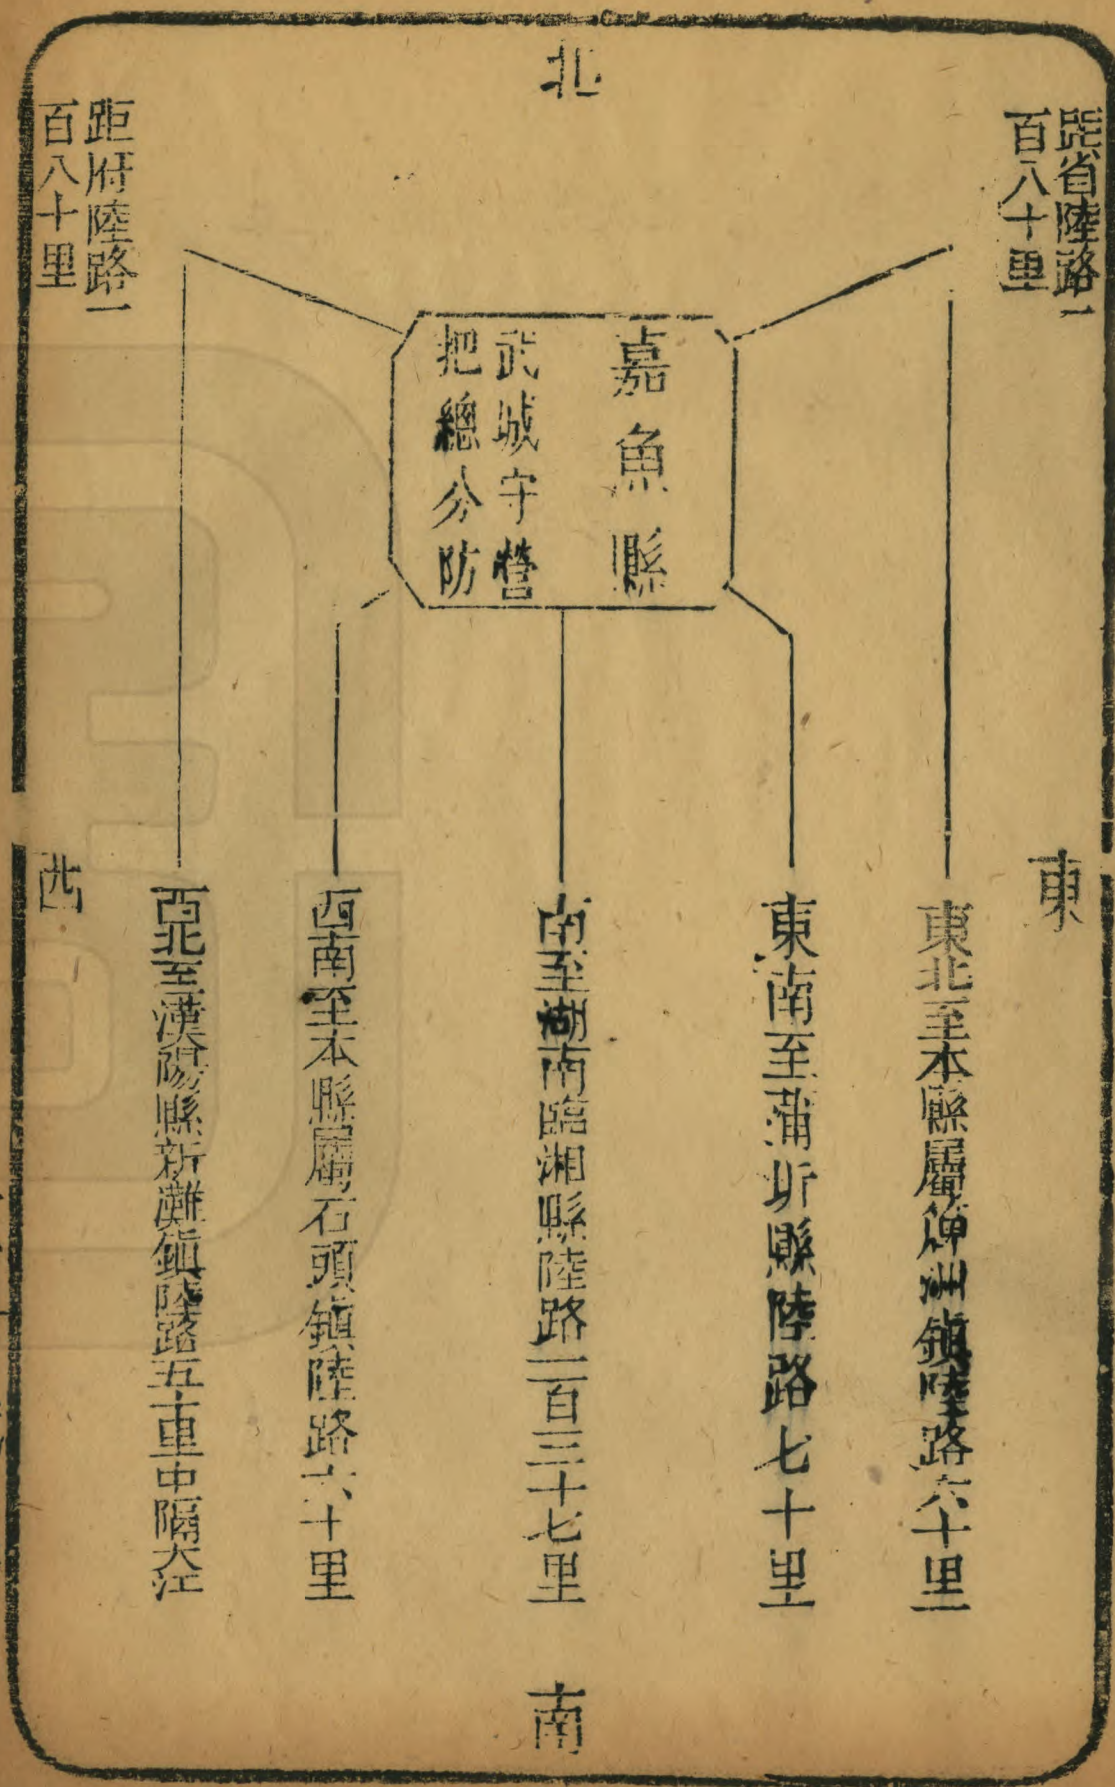 北
距省陸路一
百八十里
距府陸路一
百八十里
嘉魚縣
武城守營
把總分防
東
西
東北至本縣屬簰洲鎮陸路六十里
東南至蒲圻縣陸路七十里
南至湖南臨湘縣陸路一百三十七里
西南至本縣屬石頭鎮陸路六十里
西北至漢陽縣新灘鎮陸路五十里中隔大江
南